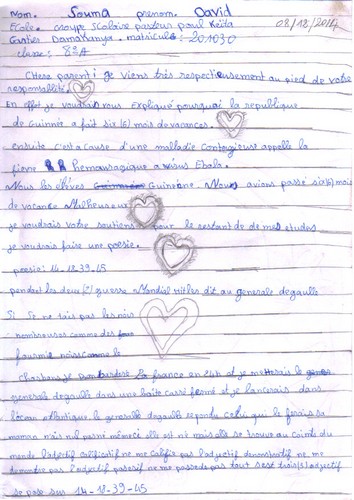 Nom. Souma prenom. David
Ecole. groupe scolaire pasteur paul Keita 08/12/2014
Cartier Damakanya. matricule: 201030
classe: 8èA
Chers parent je viens très respectieusement au pied de votre
responsablité.
En effet je voudrais vous expliqué pourquoi la republique
de Guinnée a fait six (6) mois de vacances.
ensuite c'est a cause d'une malladie Contagieuse appelle la
fievre Hemouragique a vésus Ebola.
Nous les élèves Guinéene. Nous avions passé six(6) mois
de vacance Malheureux
je voudrais votre soutiens pour le restant de mes etudes
je voudrais faire une poesie.
poesie: 14-18-39-45
pendant les deux (2) guerre Mondial Hitles dit au generale degaulle
Si Se ne tais pas les noirs
nombreuses comme des
fourmie noirs comme le
Charbons je bombarderé la france en 24h et je metterais le
generale degaulle dans une boite carré fermé et je lancerais dans
l'océan Atlantique. le generalle degaulle repondu celui qui le ferais sa
maman n'ai nul parmé mémeci elle est né mais elle se trouve au Cointe du
monde l'adjectif calificatif ne me califie pas l'adjectif demonstratif ne me
demontre pas l'adjectif possesif ne me possede pas tout sest trois(3) adjectif
se pose sur 14-18-39-45